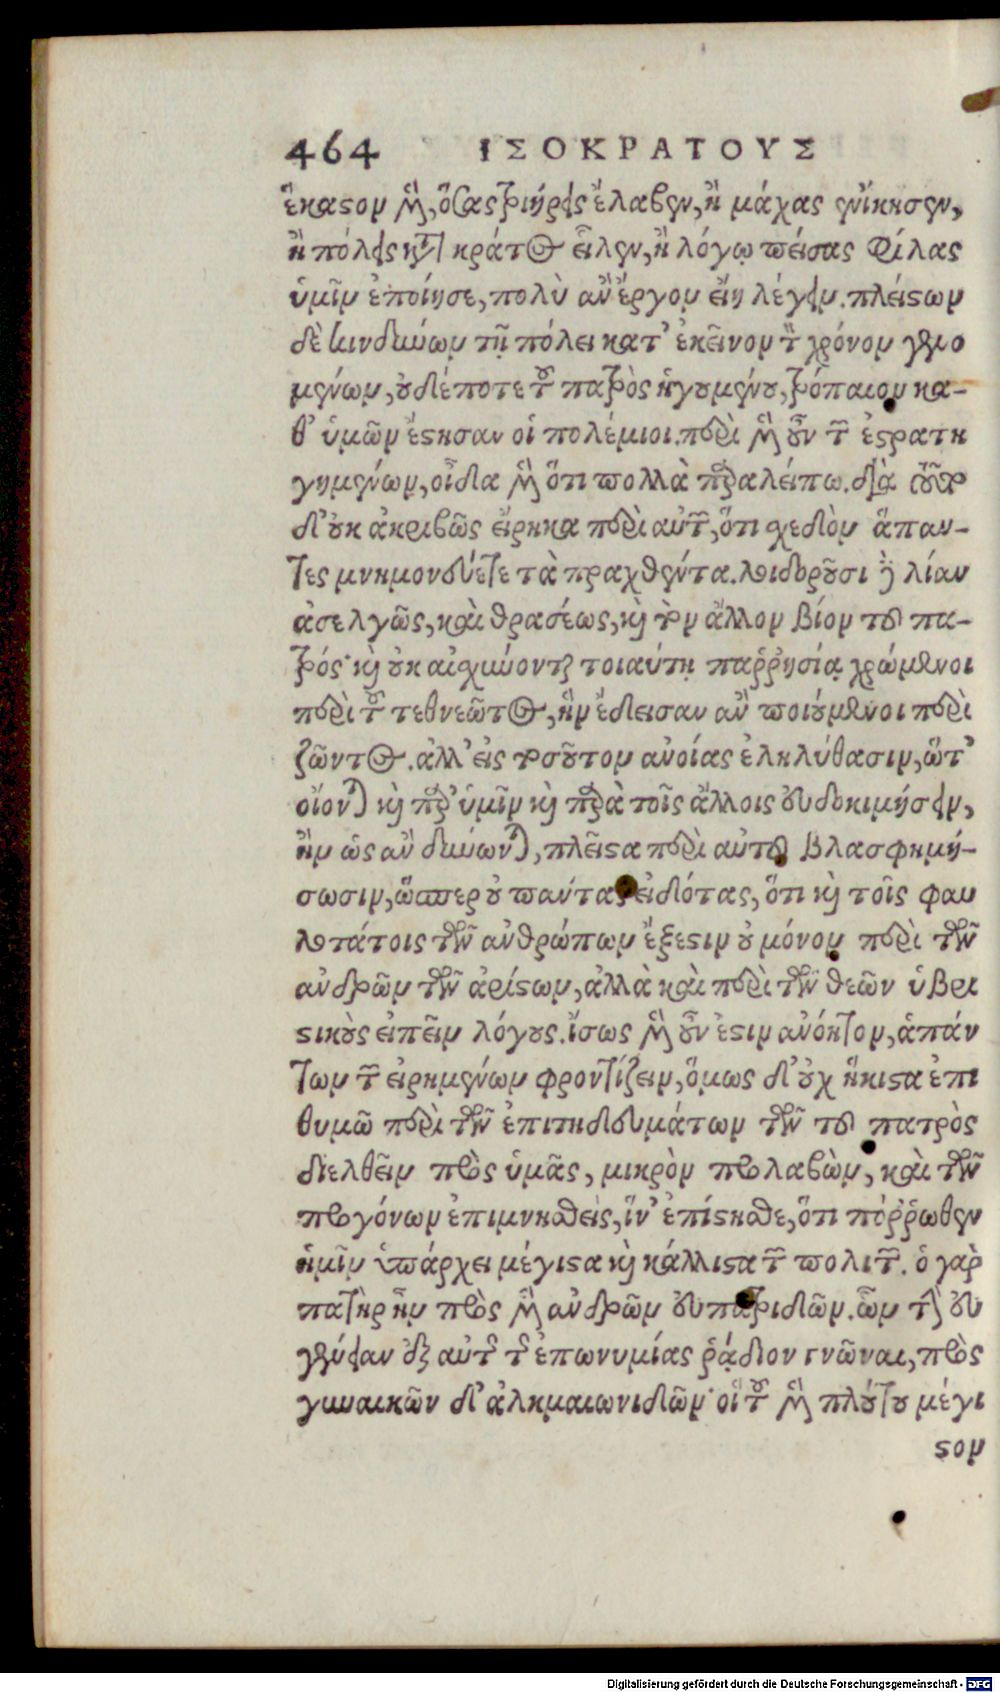 464 ΙΣΟΚΡΑΤΟΥΣ
ἕκαστον μὲν, ὅσας τριήρεις ἔλαβεν, ἢ μάχας ἐνίκησεν,
ἢ πόλεις κατὰ κράτος εἷλεν, ἢ λόγῳ πείσας φίλας
ὑμῖν ἐποίησε, πολὺ ἂν ἔργον εἴη λέγειν. πλείστων
δὲ κινδύνων τῇ πόλει κατ' ἐκεῖνον τὸν χρόνον γενο
μένων, οὐδέποτε τοῦ πατρὸς ἡγουμένου, τρόπαιον κα-
θ' ὑμῶν ἔστησαν οἱ πολέμιοι. περὶ μὲν οὖν τῶν ἐστρατη
γημένων, οἶδα μὲν ὅτι πολλὰ παραλείπω. διὰ τοῦτο
δ' οὐκ ἀκριβῶς εἴρηκα περὶ αὐτῶν, ὅτι σχεδὸν ἅπαν-
τες μνημονεύετε τὰ πραχθέντα. λοιδοροῦσι δὲ λίαν
ἀσελγῶς, καὶ θρασέως, καὶ τὸν ἄλλον βίον τοῦ πα-
τρός· καὶ οὐκ αἰσχύνονται τοιαύτῃ παῤῥησίᾳ χρώμενοι
περὶ τοῦ τεθνεῶτος, ἣν ἔδεισαν ἂν ποιούμενοι περὶ
ζῶντος. ἀλλ' εἰς τοσοῦτον ἀνοίας ἐληλύθασιν, ὥστ'
οἴονται καὶ παρ' ὑμῖν καὶ παρὰ τοῖς ἄλλοις εὐδοκιμήσειν,
ἢν ὡς ἂν δύνωνται, πλεῖστα περὶ αὐτοῦ βλασφημή-
σωσιν, ὥσπερ οὐ πάντας εἰδότας, ὅτι καὶ τοῖς φαυ
λοτάτοις τῶν ἀνθρώπων ἔξεστιν οὐ μόνον περὶ τῶν
ἀνδρῶν τῶν ἀρίστων, ἀλλὰ καὶ περὶ τῶν θεῶν ὑβρι
στικοὺς εἰπεῖν λόγους. ἴσως μὲν οὖν ἐστιν ἀνόητον, ἁπάν
των τῶν εἰρημένων φροντίζειν, ὅμως δ' οὐχ ἥκιστα ἐπι
θυμῶ περὶ τῶν ἐπιτηδευμάτων τῶν τοῦ πατρὸς
διελθεῖν πρὸς ὑμᾶς, μικρὸν προλαβὼν, καὶ τῶν
προγόνων ἐπιμνησθεὶς, ἵν' ἐπίστησθε, ὅτι πόῤῥωθεν
ἡμῖν ὑπάρχει μέγιστα καὶ κάλλιστα τῶν πολιτῶν. ὁ γὰρ
πατὴρ ἦν πρὸς μὲν ἀνδρῶν εὐπατριδῶν. ὧν τὴν εὐ
γένειαν ἐξ αὐτῆς τῆς ἐπωνυμίας ῥᾴδιον γνῶναι, πρὸς
γυναικῶν δ' ἀλκμαιωνιδῶν· οἳ τοῦ μὲν πλούτου μέγι
στον
Digitalisierung gefördert durch die Deutsche Forschungsgemeinschaft - DFG